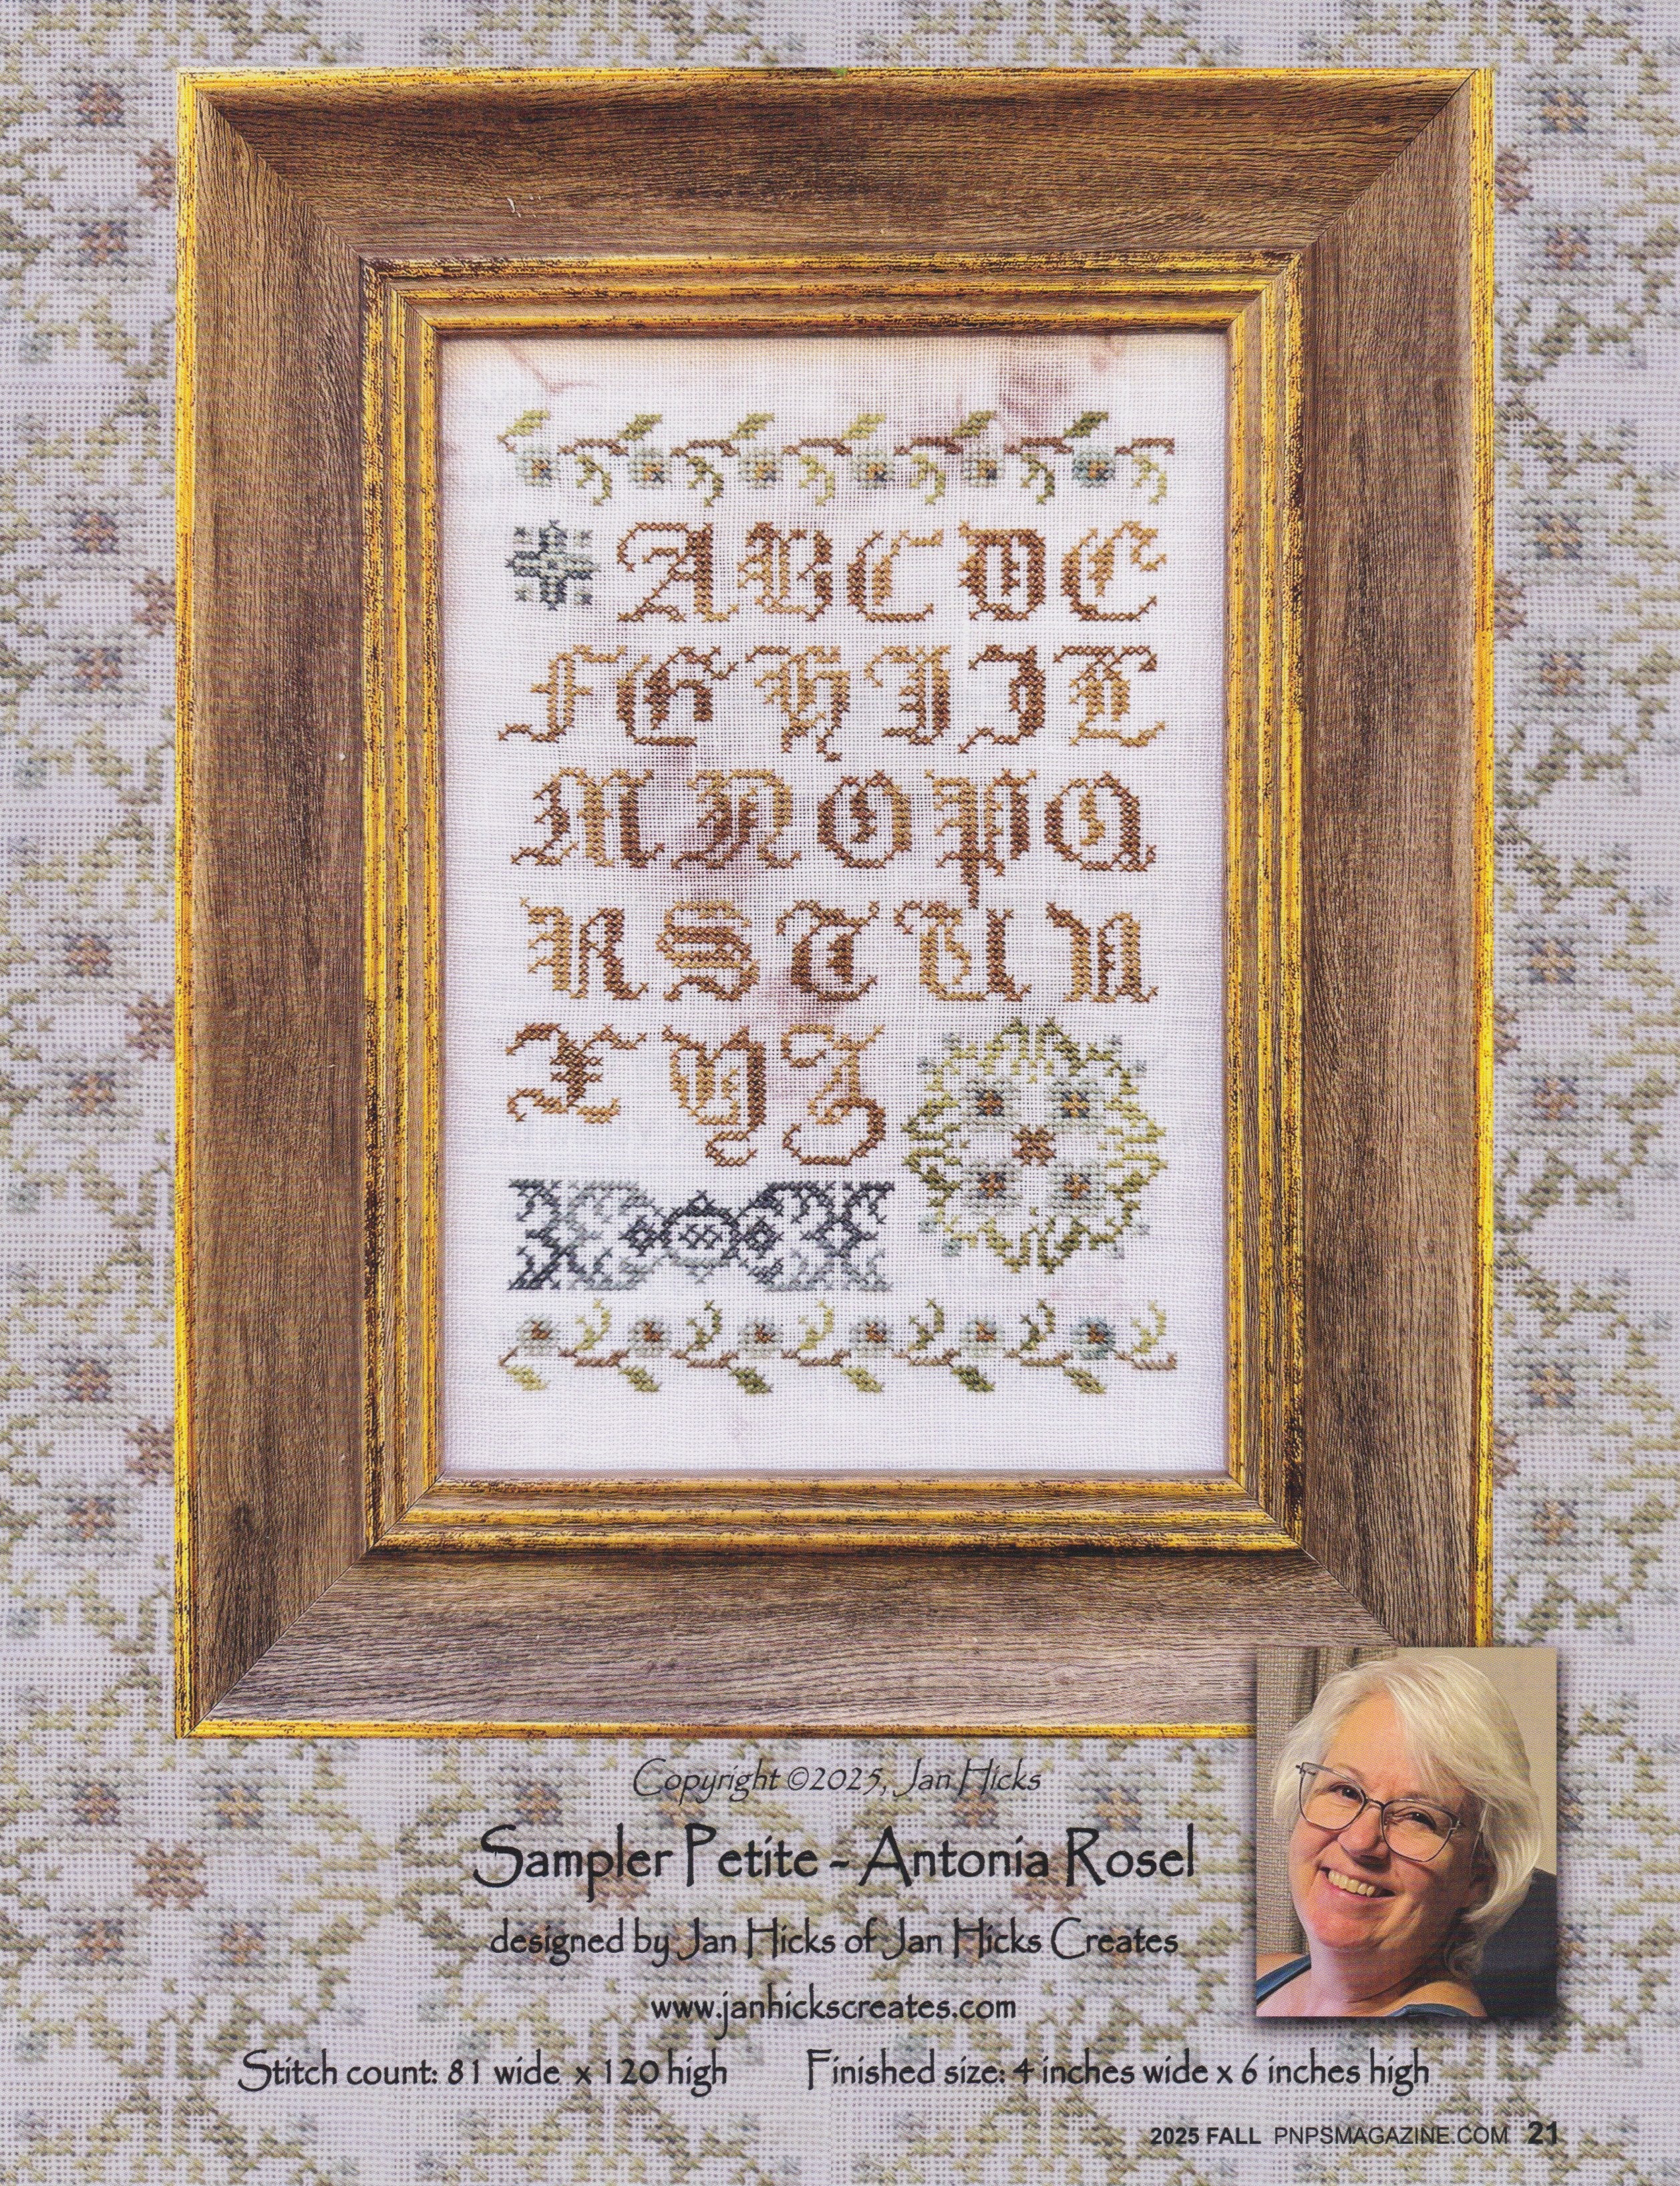 A B C D E
F G H I J L
M N O P Q
R S T U V
X Y Z
Copyright ©2025, Jan Hicks
Sampler Petite - Antonia Rosel
designed by Jan Hicks of Jan Hicks Creates
www.janhickscreates.com
Stitch count: 81 wide x 120 high Finished size: 4 inches wide x 6 inches high
2025 FALL PNPSMAGAZINE.COM 21